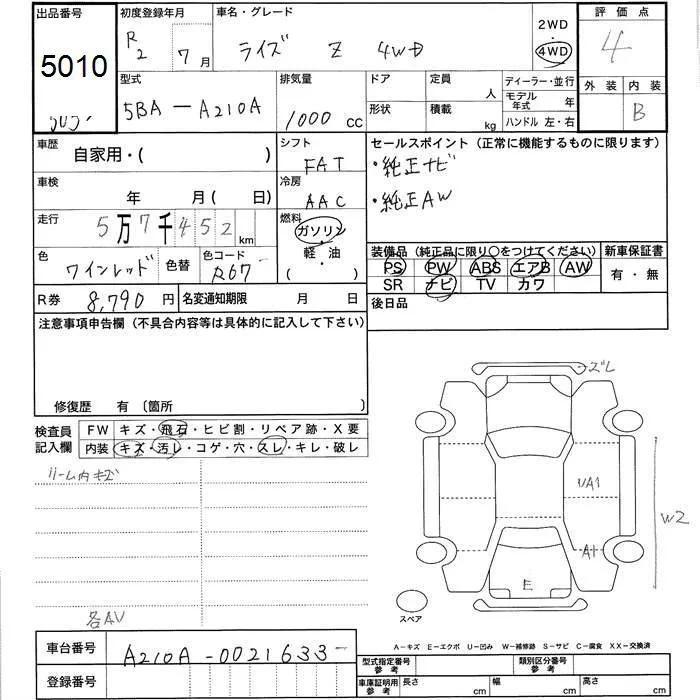 出品番号 初度登録年月 車名・グレード 2WD 評価点
5010 R2 7月 ライズ Z 4WD 4WD 4
型式 排気量 ドア 定員 人 ディーラー・並行 外装 内装
5BA-A210A 1000cc 形状 積載 kg モデル年式 年 B
ハンドル 左・右
車歴 自家用・( ) シフト FAT セールスポイント (正常に機能するものに限ります)
・純正ナビ
車検 年 月( 日) 冷房 AAC ・純正AW
走行 5万7千452km 燃料 ガソリン
軽・油
・( )
色 ワインレッド 色替 色コード R67 装備品 (純正品に限り○をつけてください) 新車保証書
PS PW ABS エアB AW 有・無
SR ナビ TV カワ
R券 8,790円 名変通知期限 月 日 後日品
注意事項申告欄 (不具合内容等は具体的に記入して下さい)
修復歴 有 〔箇所 〕
検査員記入欄 FW キズ・飛石・ヒビ割・リペア跡・X要
内装 キズ・汚レ・コゲ・穴・スレ・キレ・破レ
ルーム内キズ
各AU
ズレ
UA1
A1
W2
E
スペア
A-キズ E-エクボ U-凹み W-補修跡 S-サビ C-腐食 XX-交換済
車台番号 A210A-0021633-
登録番号
型式指定番号 参考 類別区分番号 参考
車庫証明用 参考 長さ cm 幅 cm 高さ cm